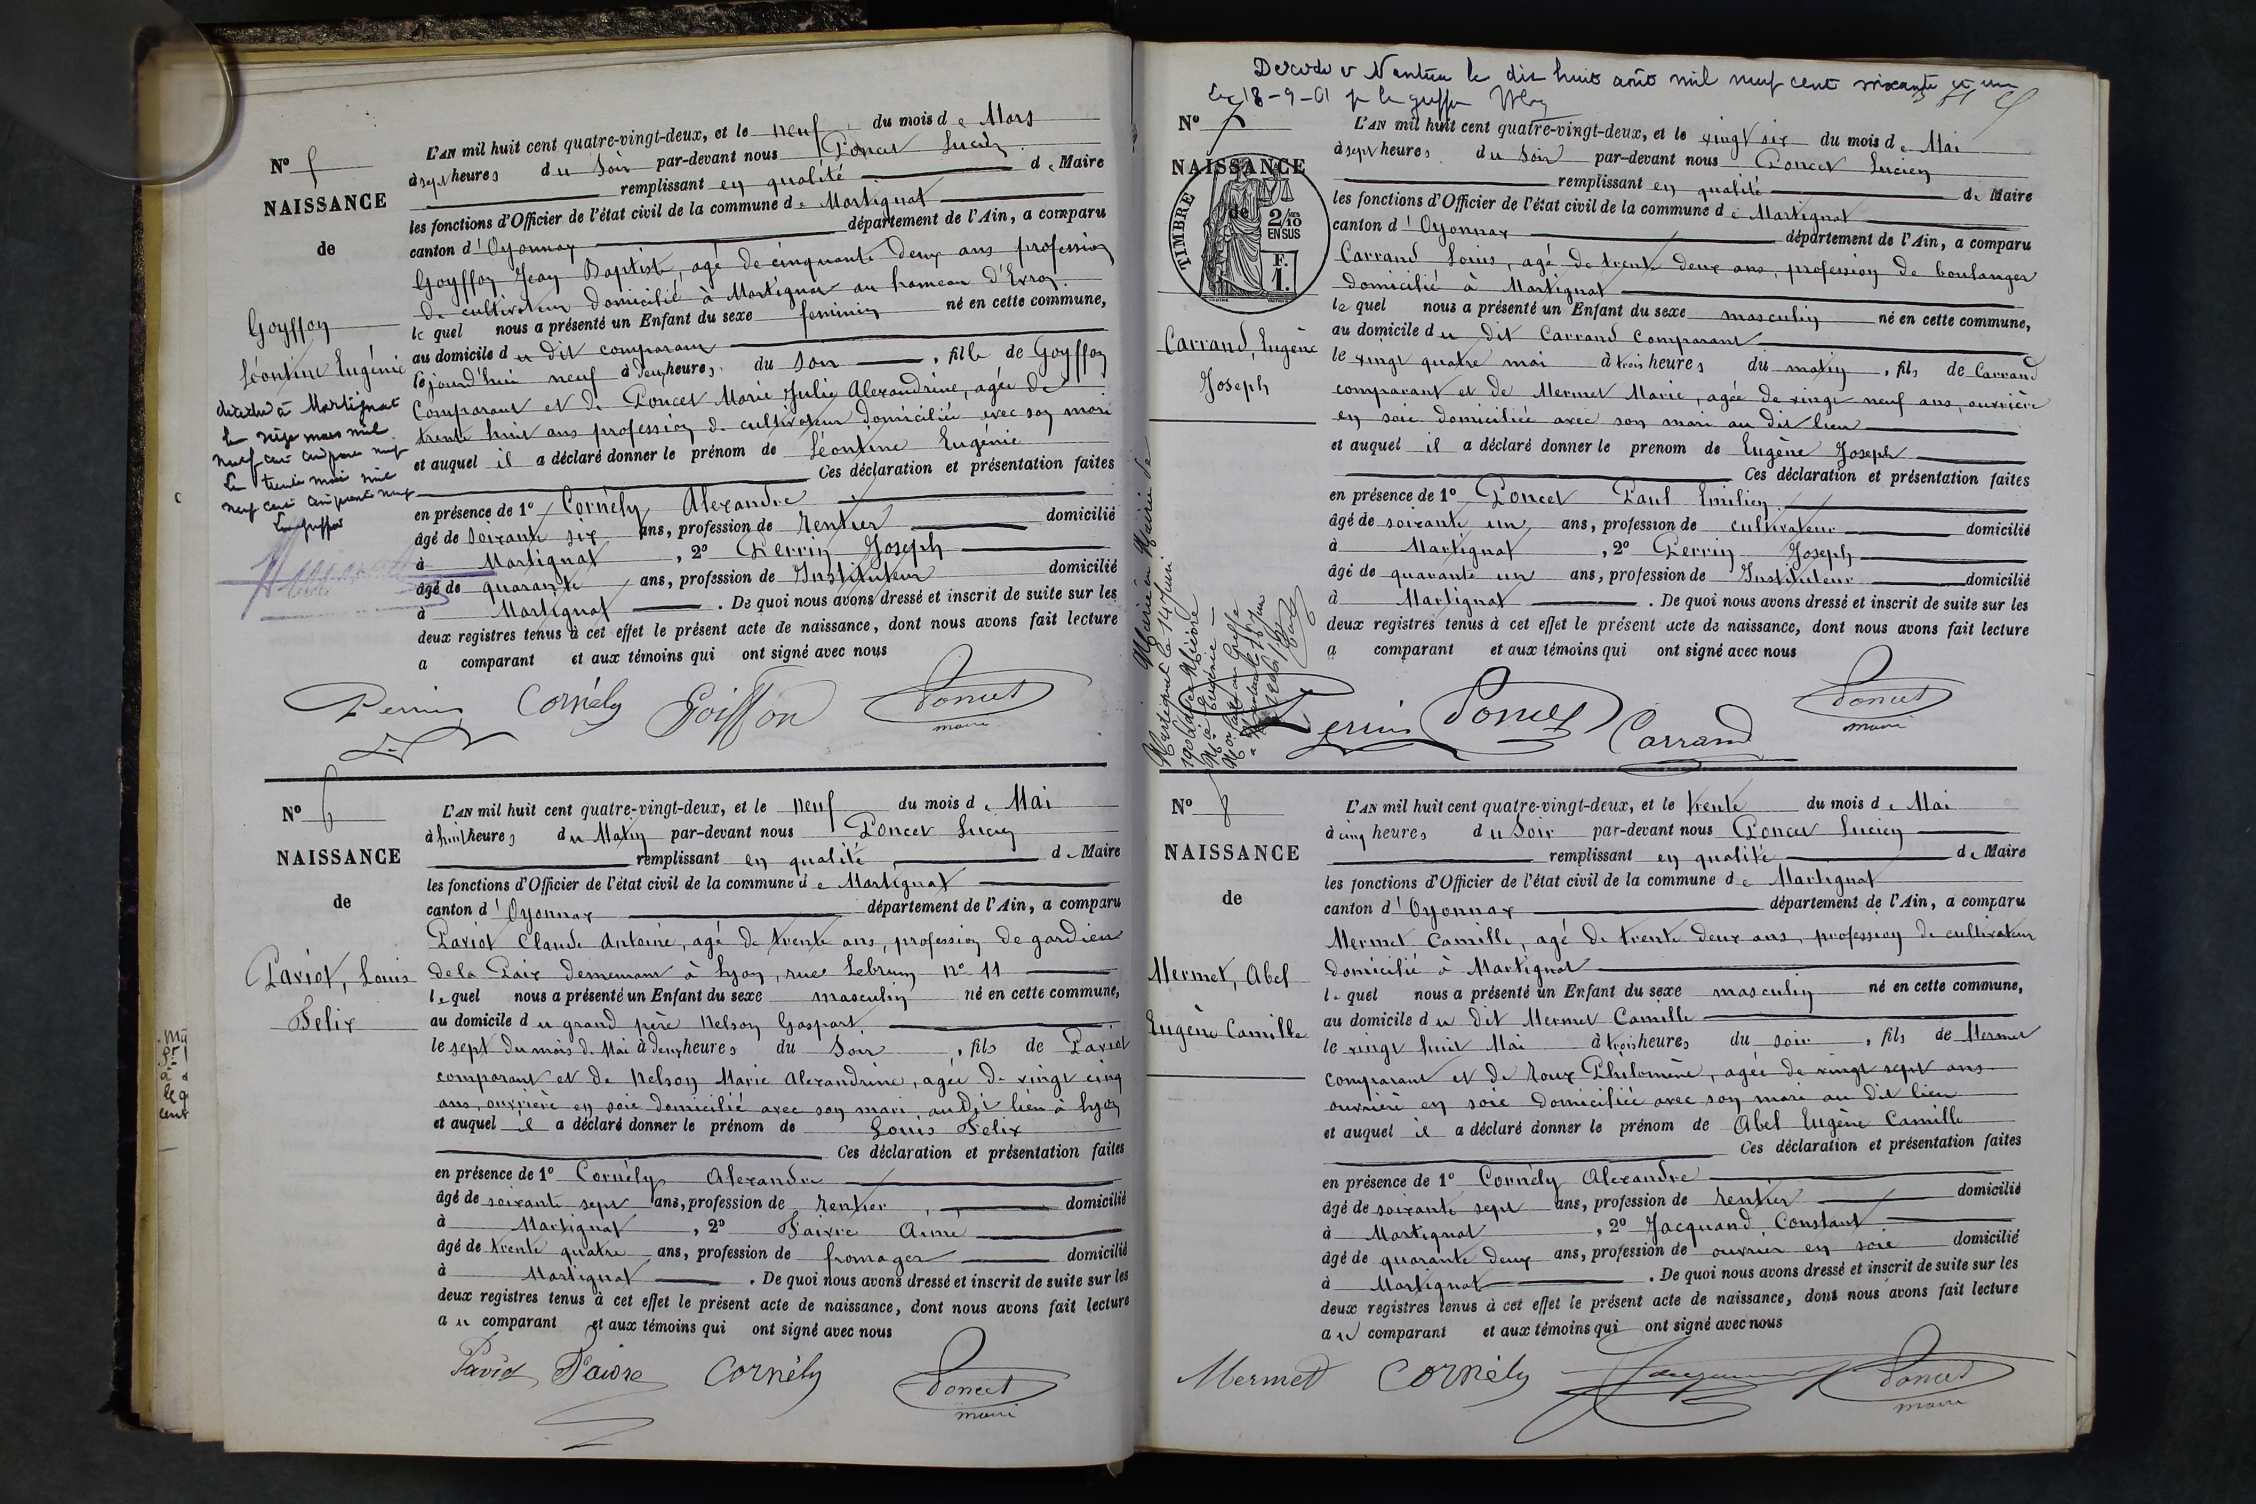 Nº 5
NAISSANCE
de
Goyffon
Léontine Eugénie
décédée à Martignat
le seize mars mil
neuf cent cinquante neuf
Le trente mai mil
neuf cent cinquante neuf
L'AN mil huit cent quatre-vingt-deux, et le neuf du mois de Mars
à sept heures du Soir par-devant nous Poncet Lucien
remplissant en qualité de Maire
les fonctions d'Officier de l'état civil de la commune de Martignat
canton d'Oyonnax département de l'Ain, a comparu
Goyffon Jean Baptiste, agé de cinquante deux ans profession
de cultivateur domicilié à Martignat au hameau d'Evron.
lequel nous a présenté un Enfant du sexe feminin né en cette commune,
au domicile du dit comparant
le jourd'hui neuf à deux heures du soir, fille de Goyffon
Comparant et de Poncet Marie Julie Alexandrine, agée de
trente huit ans profession de cultivateur domiciliée avec son mari
et auquel il a déclaré donner le prénom de Léontine Eugénie
Ces déclaration et présentation faites
en présence de 1º Cornély Alexandre
âgé de soixante six ans, profession de rentier domicilié
à Martignat, 2º Perrin Joseph
âgé de quarante ans, profession de Instituteur domicilié
à Martignat. De quoi nous avons dressé et inscrit de suite sur les
deux registres tenus à cet effet le présent acte de naissance, dont nous avons fait lecture
a comparant et aux témoins qui ont signé avec nous
Perrin Cornély Goiffon Poncet
maire
Nº 6
NAISSANCE
de
Paviot, Louis
Felix
L'AN mil huit cent quatre-vingt-deux, et le neuf du mois de Mai
à huit heures du Matin par-devant nous Poncet Lucien
remplissant en qualité de Maire
les fonctions d'Officier de l'état civil de la commune de Martignat
canton d'Oyonnax département de l'Ain, a comparu
Paviot Claude Antoine, agé de trente ans, profession de gardien
de la Paix demeurant à Lyon, rue Lebrun nº 11
lequel nous a présenté un Enfant du sexe masculin né en cette commune,
au domicile du grand père Nelson Gaspart
le sept du mois de Mai à deux heures du Soir, fils de Paviot
comparant et de Nelson Marie Alexandrine, agée de vingt cinq
ans, ouvrière en soie domicilié avec son mari, au dit lieu à Lyon
et auquel il a déclaré donner le prénom de Louis Felix
Ces déclaration et présentation faites
en présence de 1º Cornély Alexandre
âgé de soixante sept ans, profession de rentier domicilié
à Martignat, 2º Faivre Aimé
âgé de trente quatre ans, profession de fromager domicilié
à Martignat. De quoi nous avons dressé et inscrit de suite sur les
deux registres tenus à cet effet le présent acte de naissance, dont nous avons fait lecture
au comparant et aux témoins qui ont signé avec nous
Paviot Faivre Cornély Poncet
maire
Décédé à Nantua le dix huit août mil neuf cent soixante et un
Le 18-9-61
Nº 7
NAISSANCE
de
TIMBRE
2/10
EN SUS
F.
1.
Carrand, Eugène
Joseph
L'AN mil huit cent quatre-vingt-deux, et le vingt six du mois de Mai
à sept heures du Soir par-devant nous Poncet Lucien
remplissant en qualité de Maire
les fonctions d'Officier de l'état civil de la commune de Martignat
canton d'Oyonnax département de l'Ain, a comparu
Carrand Louis, agé de trente deux ans, profession de boulanger
domicilié à Martignat
lequel nous a présenté un Enfant du sexe masculin né en cette commune,
au domicile du dit Carrand Comparant
le vingt quatre mai à trois heures du matin, fils de Carrand
comparant et de Mermet Marie, agée de vingt neuf ans, ouvrière
en soie domiciliée avec son mari au dit lieu
et auquel il a déclaré donner le prenom de Eugène Joseph
Ces déclaration et présentation faites
en présence de 1º Poncet Paul Emilien
âgé de soixante un ans, profession de cultivateur domicilié
à Martignat, 2º Perrin Joseph
âgé de quarante un ans, profession de Instituteur domicilié
à Martignat. De quoi nous avons dressé et inscrit de suite sur les
deux registres tenus à cet effet le présent acte de naissance, dont nous avons fait lecture
a comparant et aux témoins qui ont signé avec nous
Marié en Mairie de
Martignat le 14 Juin
Perrin Poncet Carrand Poncet
maire
Nº 8
NAISSANCE
de
Mermet, Abel
Eugène Camille
L'AN mil huit cent quatre-vingt-deux, et le trente du mois de Mai
à cinq heures du Soir par-devant nous Poncet Lucien
remplissant en qualité de Maire
les fonctions d'Officier de l'état civil de la commune de Martignat
canton d'Oyonnax département de l'Ain, a comparu
Mermet Camille, agé de trente deux ans, profession de cultivateur
domicilié à Martignat
lequel nous a présenté un Enfant du sexe masculin né en cette commune,
au domicile du dit Mermet Camille
le vingt huit Mai à trois heures du soir, fils de Mermet
comparant et de Roux Philomène, agée de vingt sept ans
ouvrière en soie domiciliée avec son mari au dit lieu
et auquel il a déclaré donner le prénom de Abel Eugène Camille
Ces déclaration et présentation faites
en présence de 1º Cornély Alexandre
âgé de soixante sept ans, profession de rentier domicilié
à Martignat, 2º Jacquand Constant
âgé de quarante deux ans, profession de ouvrier en soie domicilié
à Martignat. De quoi nous avons dressé et inscrit de suite sur les
deux registres tenus à cet effet le présent acte de naissance, dont nous avons fait lecture
au comparant et aux témoins qui ont signé avec nous
Mermet Cornély Jacquand Poncet
maire